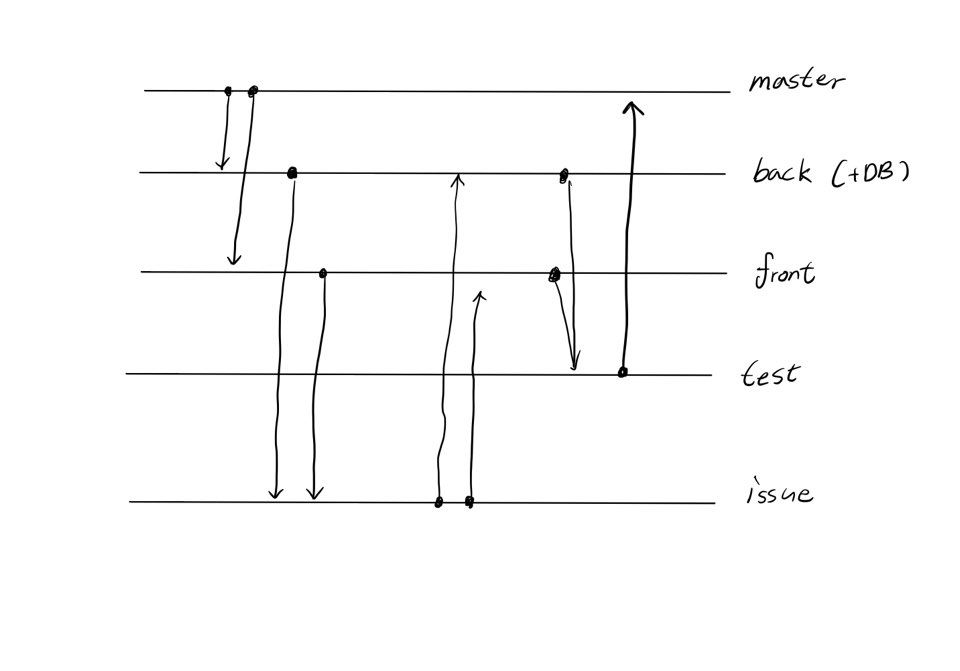 master
back (+DB)
front
test
issue